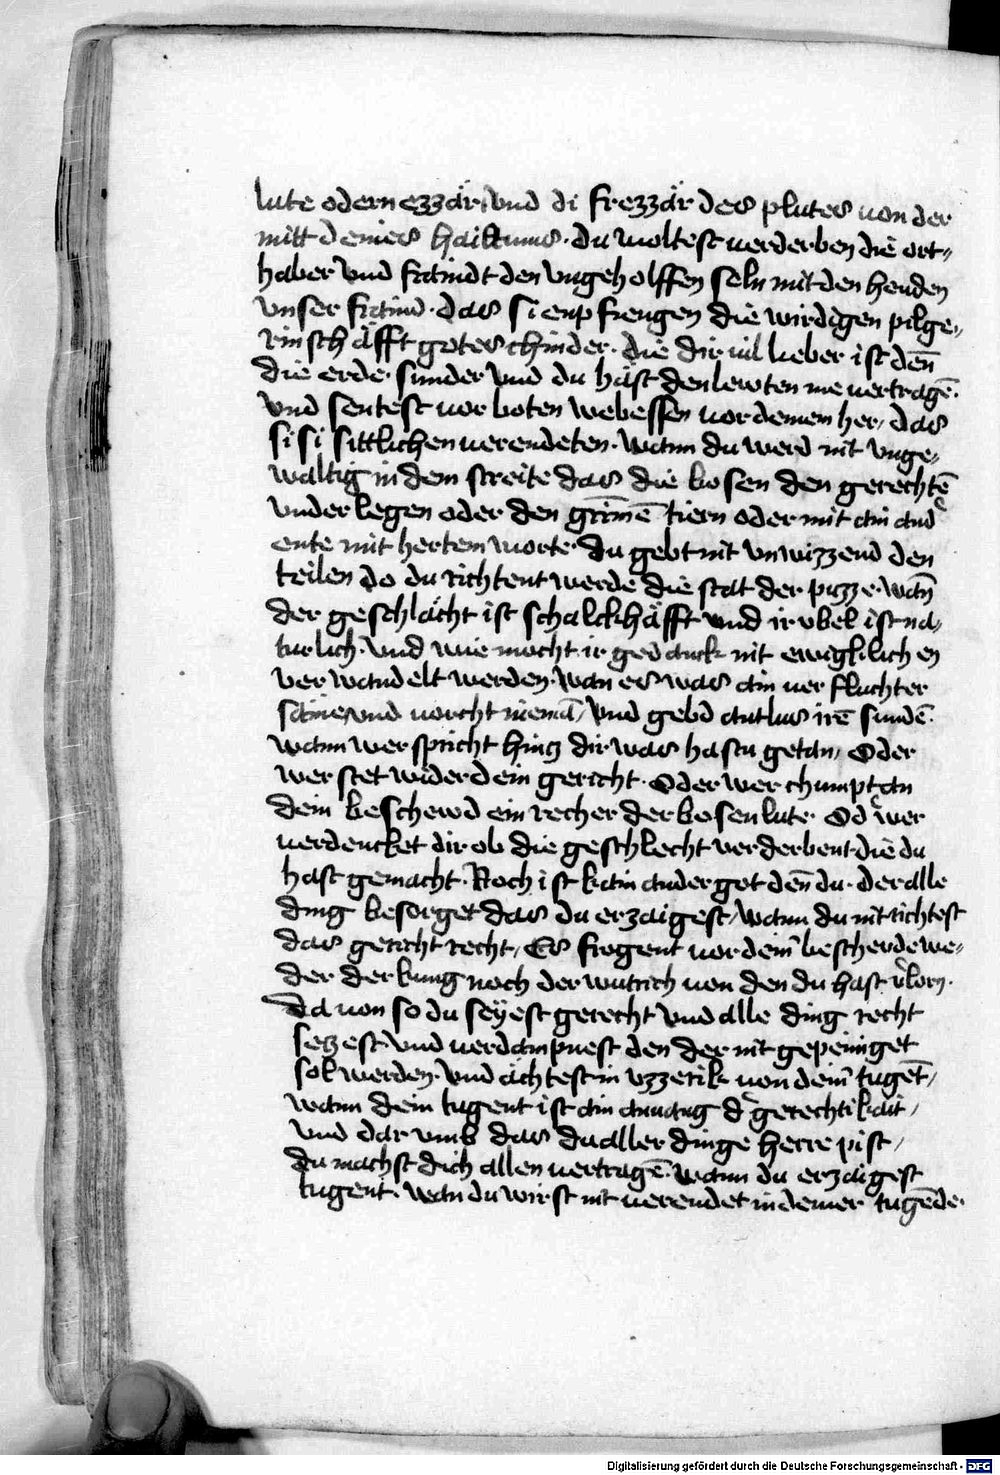 lute odern ezzär, vnd di frezzär des plutes von der
mitt deines hailtums. du woltest verderben die ort-
haber vnd fraindt den vngeholffen seln mit den henden
vnser fraind. das si enpfiengen die wirdigen pilge-
rinschäfft gotes chinder. die dir vil lieber ist den̄
die erde. sunder vnd du hast den lewten me vertragē.
vnd sentest vor boten webessen vor deinem her, das
si si sittlichen verendeten. wann du werd nit vnge-
waltig in dem streite das die bosen den gerechtē
vnder legen oder den grim̄ē tiern oder mit ain and
ente mit hertem worte. du gebt nit vnwizzend den
teilen do du richtent werde die stat der puzze. wan̄
der geschlächt ist schalckhäfft vnd ir vbel ist na-
turlich. vnd wie mocht ir gedanck nit ewigklichen
verwandelt werden. wan es was ain verfluchter
same, vnd vorcht niemā, vnd gebd antlas irē sundē.
wann wer spricht hinz dir was hastu getan, Oder
wer stet wider dein gericht. Oder wer chumpt an
dein beschewd ein recher der bosen lute. Od wer
verdencket dir ob die geschlecht verderbent die du
hast gemacht. Noch ist kain ander got den̄ du. der alle
ding besorget das du erzaigest, wann du nit richtest
das gericht recht, Es frogent vor dein̄ bescherde we-
der der kunig noch der wutrich von den du hast v̓lorn.
Da von so du seyest gerecht vnd alle ding recht
setzest vnd verdampnest den der nit gepeiniget
sol werden. vnd achtest in vzzerik von dein̄ tugēt,
wann dein tugent ist ain anuang d̓ gerechtikait,
vnd dar vmb das du aller dinge herre pist,
du machst dich allen vertragē. wann du erzaigest
tugent. wan du wirst nit verendet in deiner tugēde.
Digitalisierung gefördert durch die Deutsche Forschungsgemeinschaft - DFG